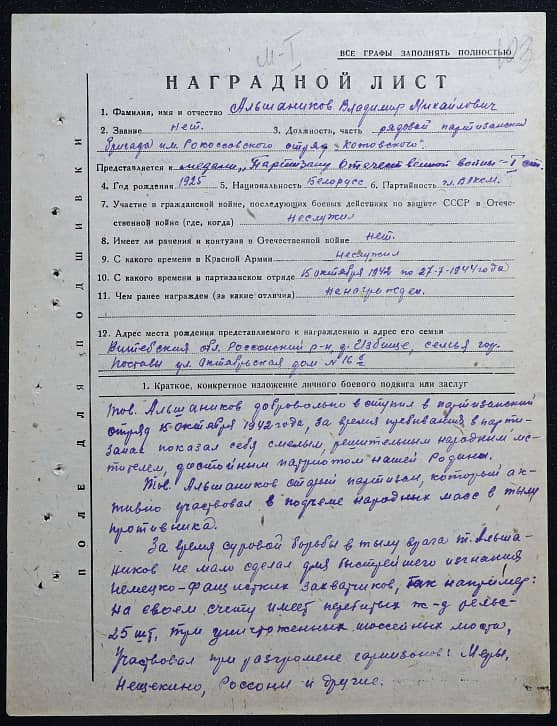 М-I
103
ВСЕ ГРАФЫ ЗАПОЛНЯТЬ ПОЛНОСТЬЮ
НАГРАДНОЙ ЛИСТ
1. Фамилия, имя и отчество Альшаников Владимир Михайлович
2. Звание нет. 3. Должность, часть рядовой партизанской
бригада им. Рокоссовского отряд „Котовского".
Представляется к медали „Партизану Отечественной войны – I ст.
4. Год рождения 1925 5. Национальность Белорусс 6. Партийность чл. ВЛКСМ.
7. Участие в гражданской войне, последующих боевых действиях по защите СССР и Отече-
ственной войне (где, когда) неслужил
8. Имеет ли ранения и контузии в Отечественной войне нет.
9. С какого времени в Красной Армии неслужил
10. С какого времени в партизанском отряде 15 октября 1942 по 27-7-1944 года)
11. Чем ранее награжден (за какие отличия) ненагражден.
12. Адрес места рождения представляемого к награждению и адрес его семьи
Витебская обл. Россонский р-н, д. Избище, семья гор.
Поставы ул. Октябрьская дом №16
1. Краткое, конкретное изложение личного боевого подвига или заслуг
Тов. Альшаников добровольно вступил в партизанский
отряд 15 октября 1942 года, за время пребывания в парти-
занах показал себя смелым, решительным народным мс-
тителем, достойным патриотом нашей Родины.
Тов. Альшаников старый партизан, который ак-
тивно участвовал в подъеме народных масс в тылу
противника.
За время суровой борьбы в тылу врага т. Альша-
ников не мало сделал для быстрейшего изгнания
немецко-фашистких захватчиков, так например:
на своем счету имеет перебитых ж-д рельс-
25 шт, три уничтоженных шоссейных моста,
Участвовал при разгромене гарнизонов: Меры,
Нещекино, Россоны и другие.
ПОЛЕ ДЛЯ ПОДШИВКИ